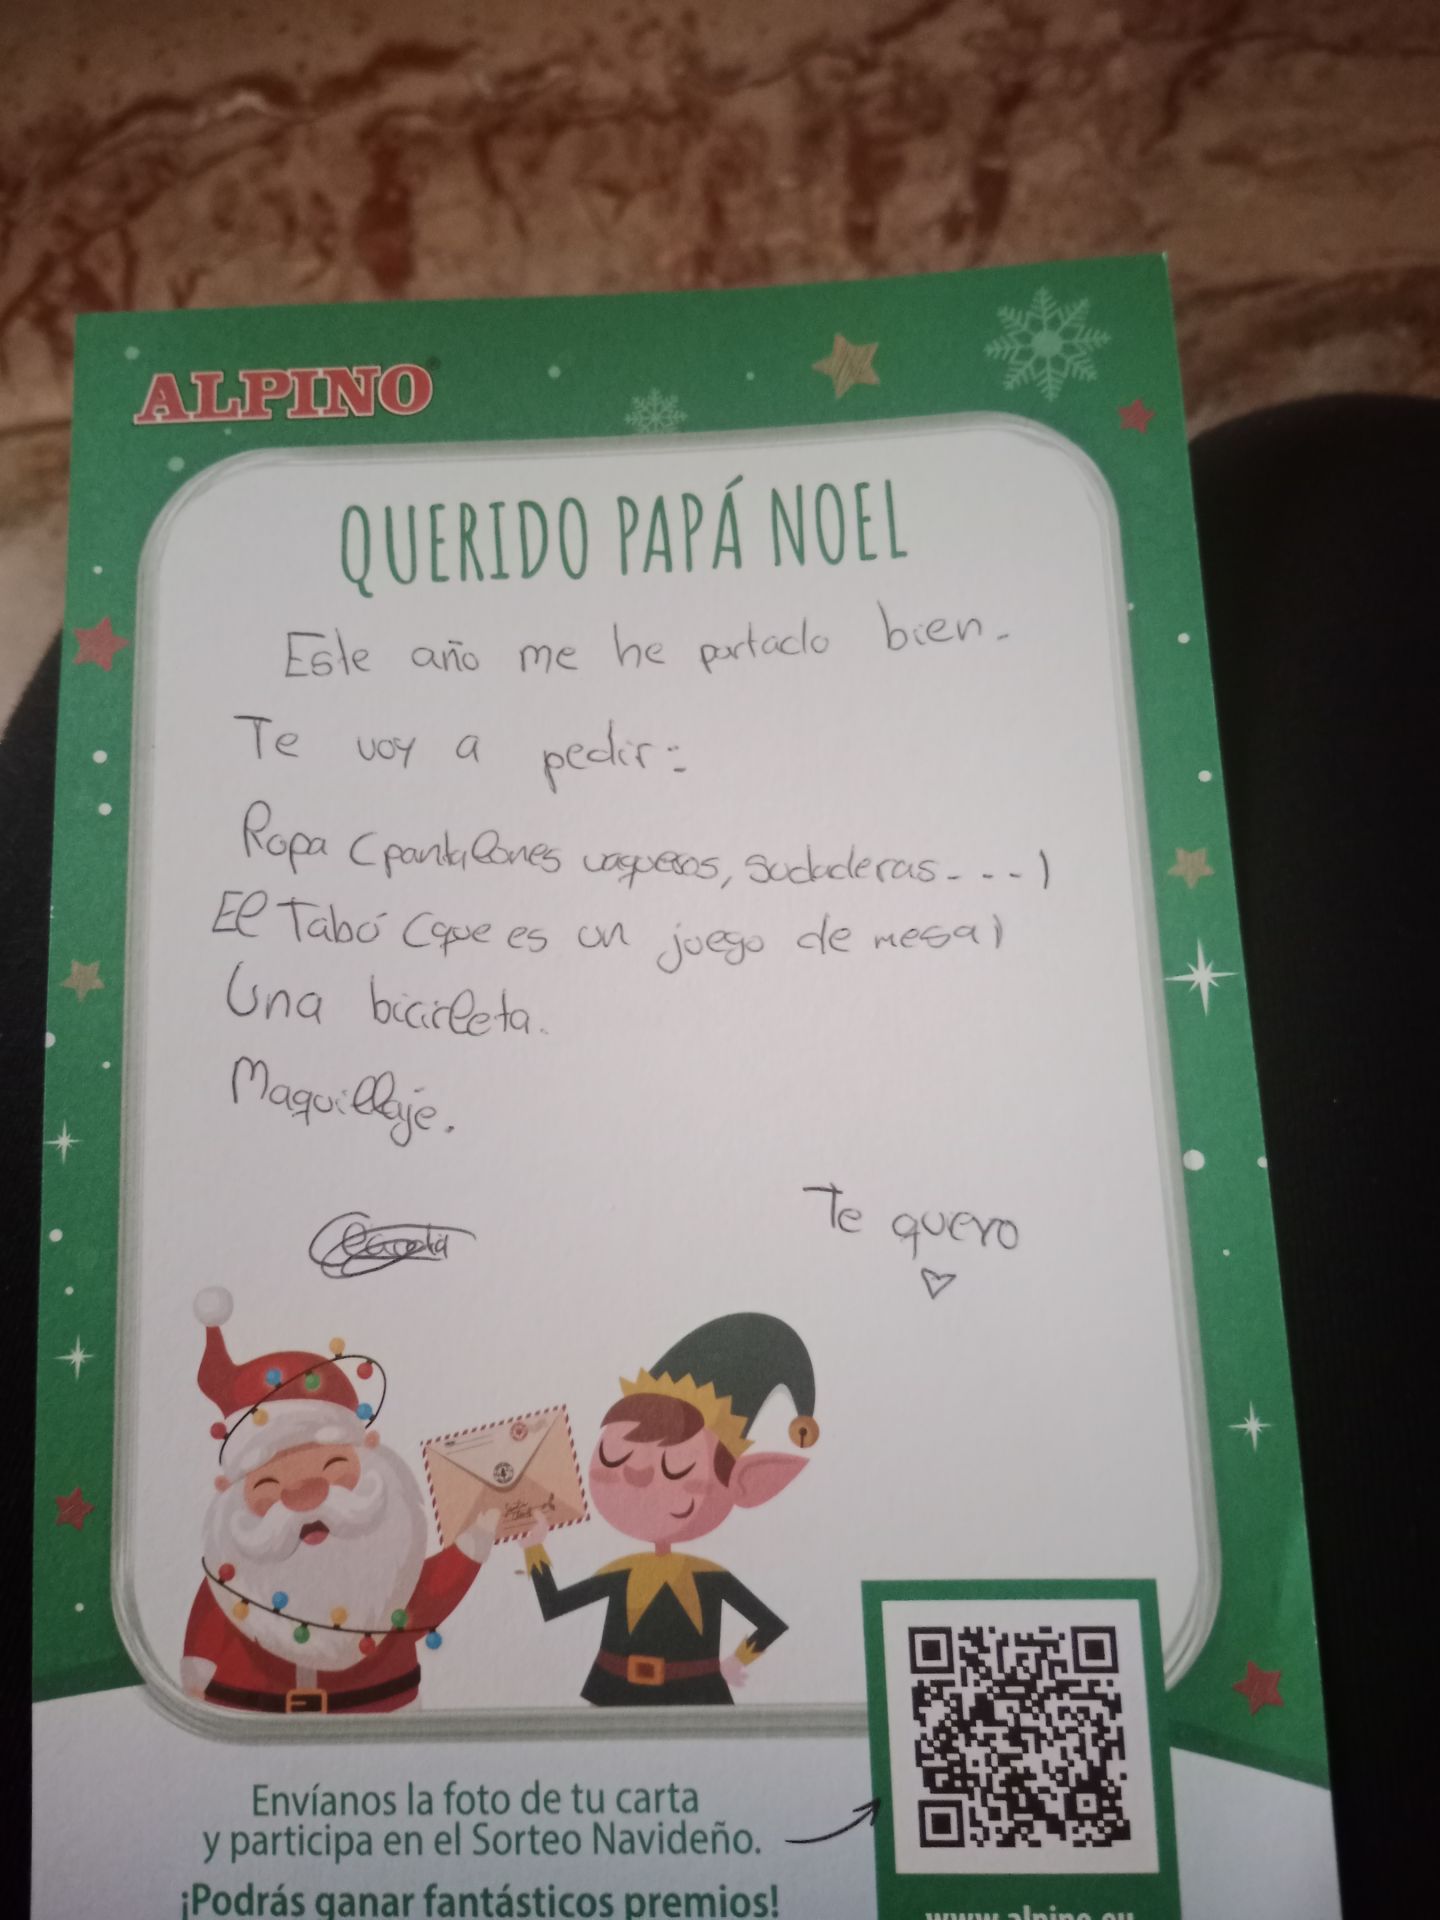 ALPINO®
QUERIDO PAPÁ NOEL
Este año me he portado bien.
Te voy a pedir:
Ropa (pantalones vaqueros, sudaderas....)
El Tabú (que es un juego de mesa)
Una bicicleta.
Maquillaje.
Te quero
Envíanos la foto de tu carta
y participa en el Sorteo Navideño.
¡Podrás ganar fantásticos premios!
www.alpino.eu